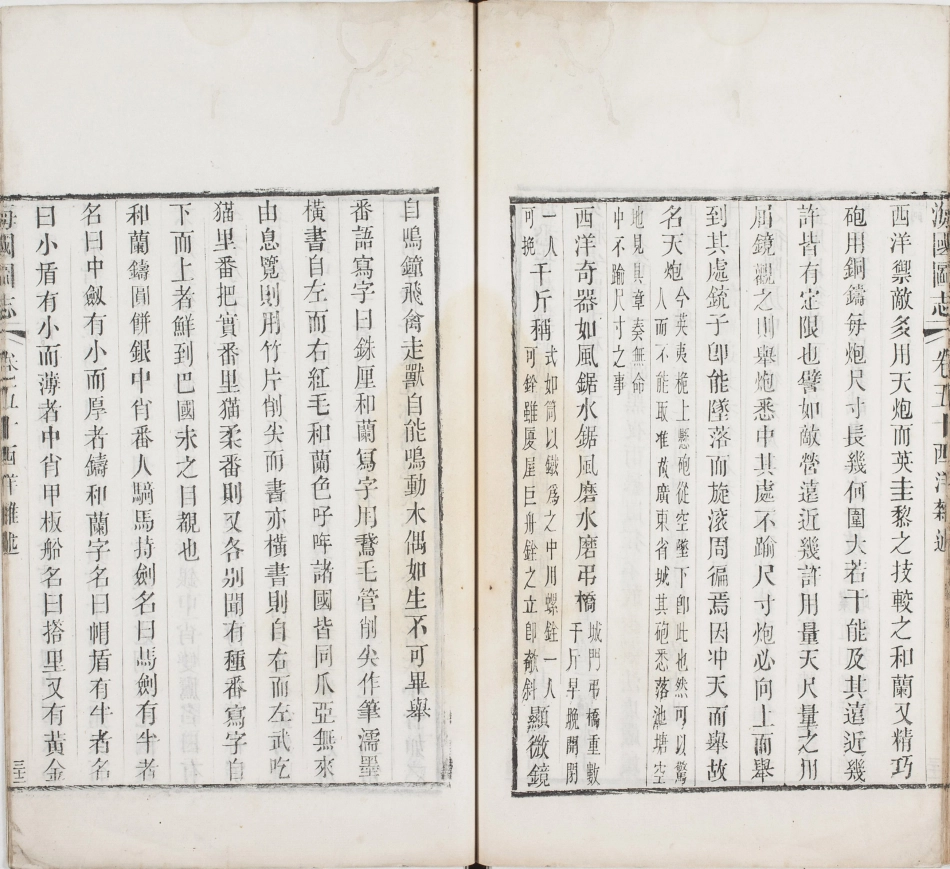 海國圖志 卷五十 西洋雜述
西洋禦敵多用天炮而英圭黎之技較之和蘭又精巧
砲用銅鑄每炮尺寸長幾何圍大若干能及其遠近幾
許皆有定限也譬如敵營遠近幾許用量天尺量之用
屈鏡觀之則舉炮悉中其處不踰尺寸炮必向上而舉
到其處銃子卽能墜落而旋滾周徧焉因冲天而舉故
名天炮
今英夷桅上懸砲從空墜下卽此也然可以驚
人而不能取准故廣東省城其砲悉落池塘空
地見其章奏無命
中不踰尺寸之事
西洋奇器如風鋸水鋸風磨水磨弔橋
城門弔橋重數
千斤早晚開閉
一人
可挽
千斤稱
式如筒以鐵爲之中用螺銓一人
可銓雖廈屋巨舟銓之立卽欹斜
顯微鏡
自鳴鐘飛禽走獸自能鳴動木偶如生不可畢舉
番語寫字曰銖厘和蘭寫字用鵞毛管削尖作筆濡墨
橫書自左而右紅毛和蘭色呀哖諸國皆同爪亞無來
由息覽則用竹片削尖而書亦橫書則自右而左武吃
猫里番把實番里猫柔番則又各别聞有種番寫字自
下而上者鮮到巴國未之目覩也
和蘭鑄圓餅銀中肖番人騎馬持劍名曰馬劍有半者
名曰中劍有小而厚者鑄和蘭字名曰帽盾有半者名
曰小盾有小而薄者中肖甲板船名曰搭里又有黃金
海國圖志 卷五十 西洋雜述 三